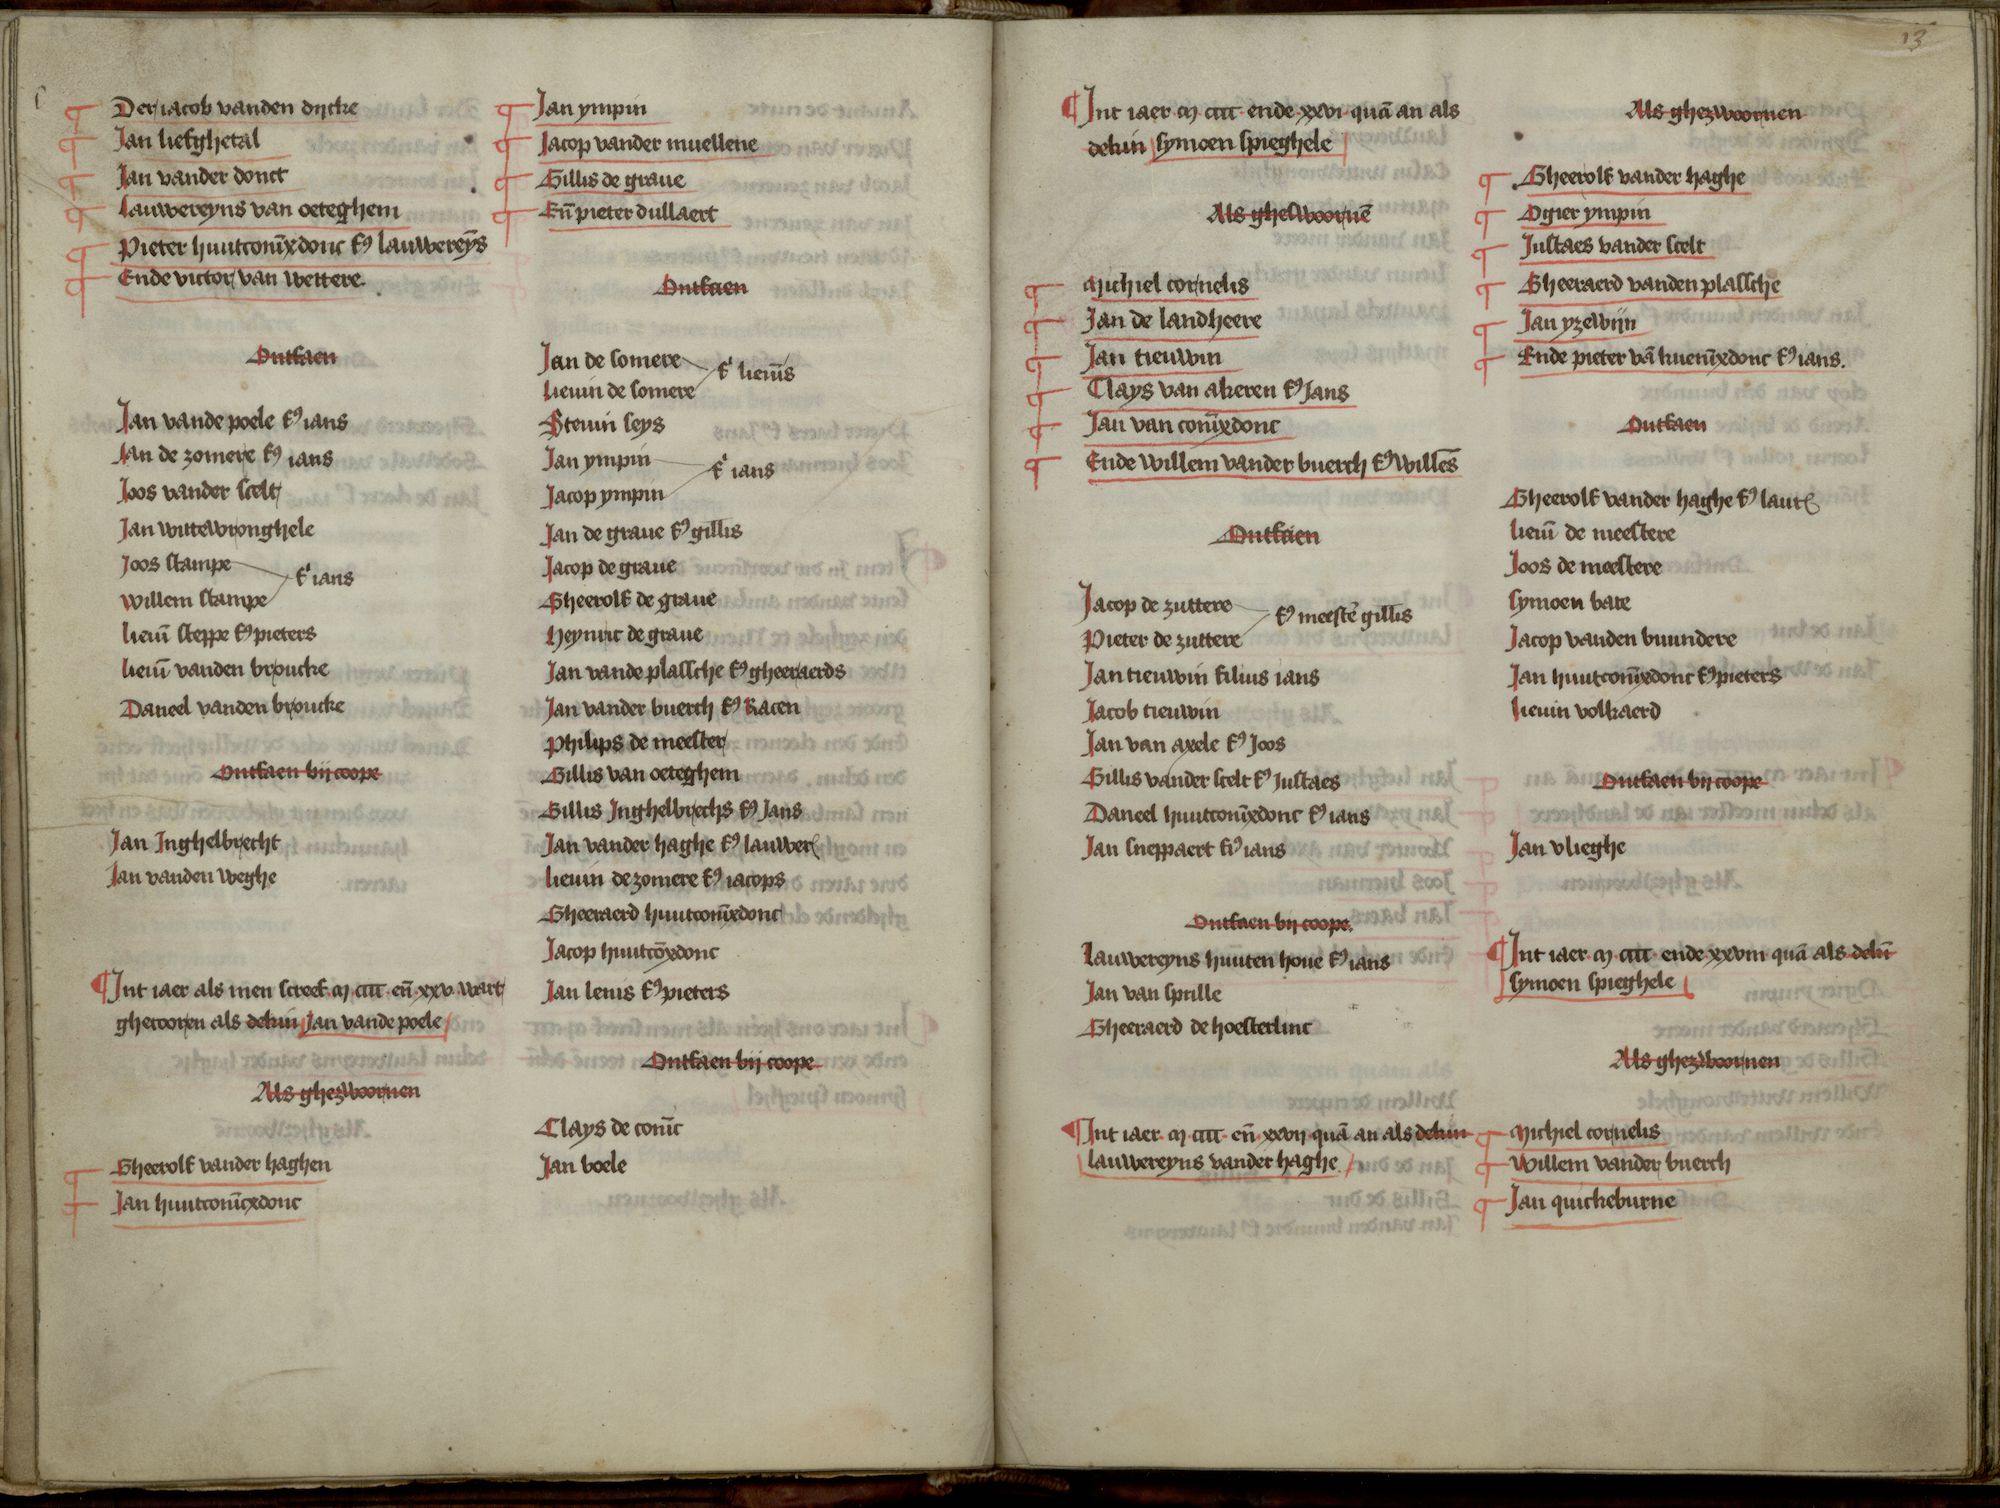 Der iacob vanden dijcke
Jan liefghetal
Jan vander donct
Lauwereyns van oeteghem
Pieter huutconīxdonc fs lauwereȳs
Ende victor van wettere.
Ontfaen
Jan vande poele fs ians
Jan de zomere fs ians
Joos vander scelt
Jan wittewronghele
Joos stampe
Willem stampe
fs ians
lieuī steppe fs pieters
lieuī vanden broucke
Daneel vanden broucke
Ontfaen bij coope
Jan Inghelbrecht
Jan vanden weghe
¶ Int iaer als men screef m cccc eñ xxv wart
ghecooren als dekin Jan vande poele
Als ghezwoornen
Gheerolf vander haghen
Jan huutconīcxdonc
Jan ympin
Jacop vander muellene
Gillis de graue
Eñ pieter dullaert
Ontfaen
Jan de somere
lieuin de somere
fs lieuīs
Steuin seys
Jan ympin
Jacop ympin
fs ians
Jan de graue fs gillis
Jacop de graue
Gheerolf de graue
Heynric de graue
Jan vande plassche fs gheeraerds
Jan vander buerch fs Racen
Philips de meester
Gillis van oeteghem
Gillis Inghelbrechs fs Jans
Jan vander haghe fs lauwer
lieuin de zomere fs iacops
Gheeraerd huutconīxdonc
Jacop huutcōyxdonc
Jan leuis fs pieters
Ontfaen bij coope
Clays de conīc
Jan boele
13
¶ Int iaer m cccc ende xxvi quā an als
dekin symoen spieghele
Als gheswoornē
Michiel cornelis
Jan de landheere
Jan tieuwin
Clays van akeren fs Jans
Jan van conīxdonc
Ende willem vander buerch fs willēs
Ontfaen
Jacop de zuttere
Pieter de zuttere
fs meestē gillis
Jan tieuwin filius ians
Jacob tieuwin
Jan van axele fs Joos
Gillis vander scelt fs Justaes
Daneel huutconīxdonc fs ians
Jan sneppaert fs ians
Ontfaen bij coope.
Lauwereyns huuten houe fs ians
Jan van sprille
Gheeraerd de hoesterlinc
¶ Int iaer m cccc eñ xxvij quā an als dekin
lauwereyns vander haghe
Als ghezwoornen
Gheerolf vander haghe
Ogier ympin
Justaes vander scelt
Gheeraerd vanden plassche
Jan yzewijn
Ende pieter vā huenīxdonc fs ians.
Ontfaen
Gheerolf vander haghe fs laur
lieuī de meestere
Joos de meestere
symoen bate
Jacop vanden buundere
Jan huutconīxdonc fs pieters
lieuin volkaerd
Ontfaen bij coope
Jan vlieghe
¶ Int iaer m cccc ende xxviii quā als dekī
symoen spieghele
Als ghezwoornen
Michiel cornelis
Willem vander buerch
Jan quickeburne